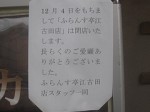 12月4日をもちまし
て「ふらんす亭江
古田店」は閉店いたし
ます。
長らくのご愛顧あ
りがとうございまし
た。
ふらんす亭江古田
店スタッフ一同